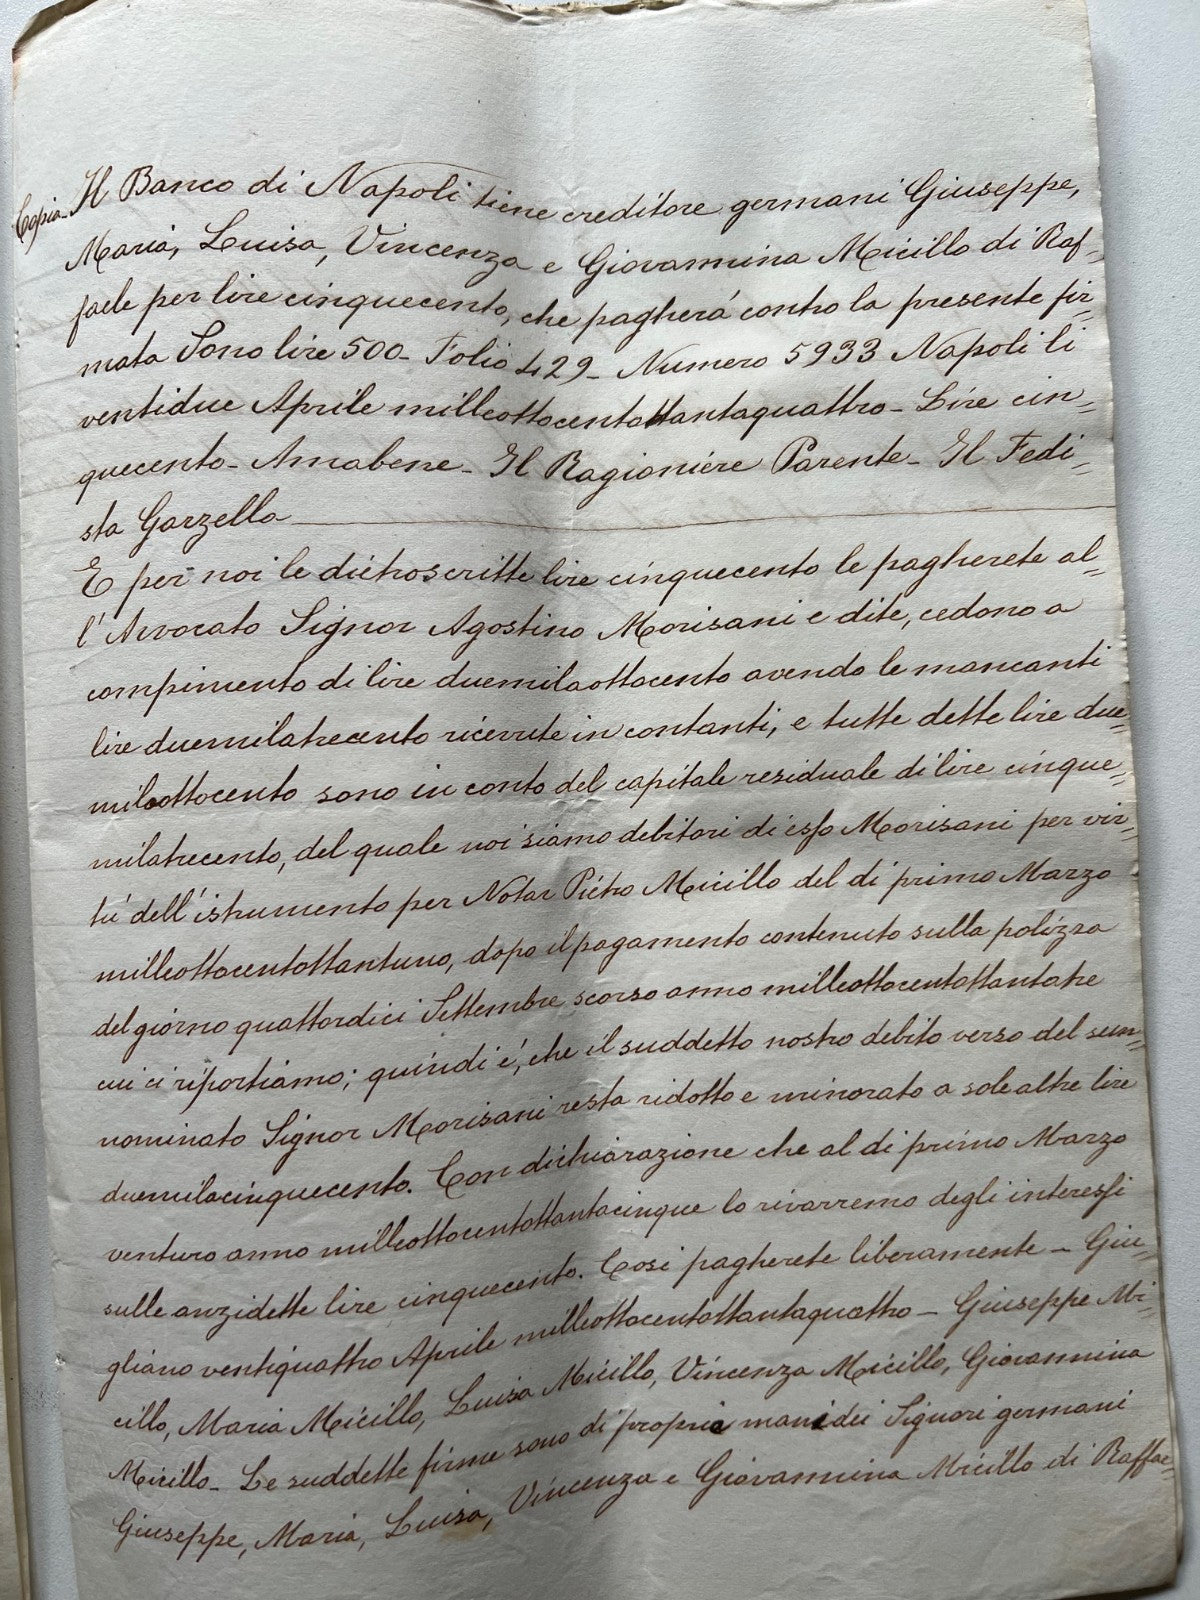 Copia_ Il Banco di Napoli tiene creditore germani Giuseppe,
Maria, Luisa, Vincenza e Giovannina Micillo di Raf=
faele per lire cinquecento, che pagherà contro la presente fir
mata Sono lire 500_ Folio 429_ Numero 5933 Napoli li
ventidue Aprile milleottocentottantaquattro_ Lire cin=
quecento_ Amabene_ Il Ragioniere Parente_ Il Fedi=
sta Garzella
E per noi le dietroscritte lire cinquecento le pagherete al=
l'Avvocato Signor Agostino Morisani e dite, cedono a
compimento di lire duemilaottocento avendo le mancanti
lire duemilatrecento ricevute in contanti, e tutte dette lire due=
milaottocento sono in conto del capitale residuale di lire cinque=
milatrecento, del quale noi siamo debitori di esso Morisani per vir=
tù dell'istrumento per Notar Pietro Micillo del di primo Marzo
milleottocentottantuno, dopo il pagamento contenuto sulla polizza
del giorno quattordici Settembre scorso anno milleottocentottantatre
cui ci riportiamo; quindi è, che il suddetto nostro debito verso del sun=
nominato Signor Morisani resta ridotto e minorato a sole altre lire
duemilacinquecento. Con dichiarazione che al di primo Marzo
venturo anno milleottocentottantacinque lo rivarremo degli interessi
sulle anzidette lire cinquecento. Così pagherete liberamente _ Giu=
gliano ventiquattro Aprile milleottocentottantaquattro _ Giuseppe Mi=
cillo, Maria Micillo, Luisa Micillo, Vincenza Micillo, Giovannina
Micillo_ Le suddette firme sono di propria mani dei Signori germani
Giuseppe, Maria, Luisa, Vincenza e Giovannina Micillo di Raffae=